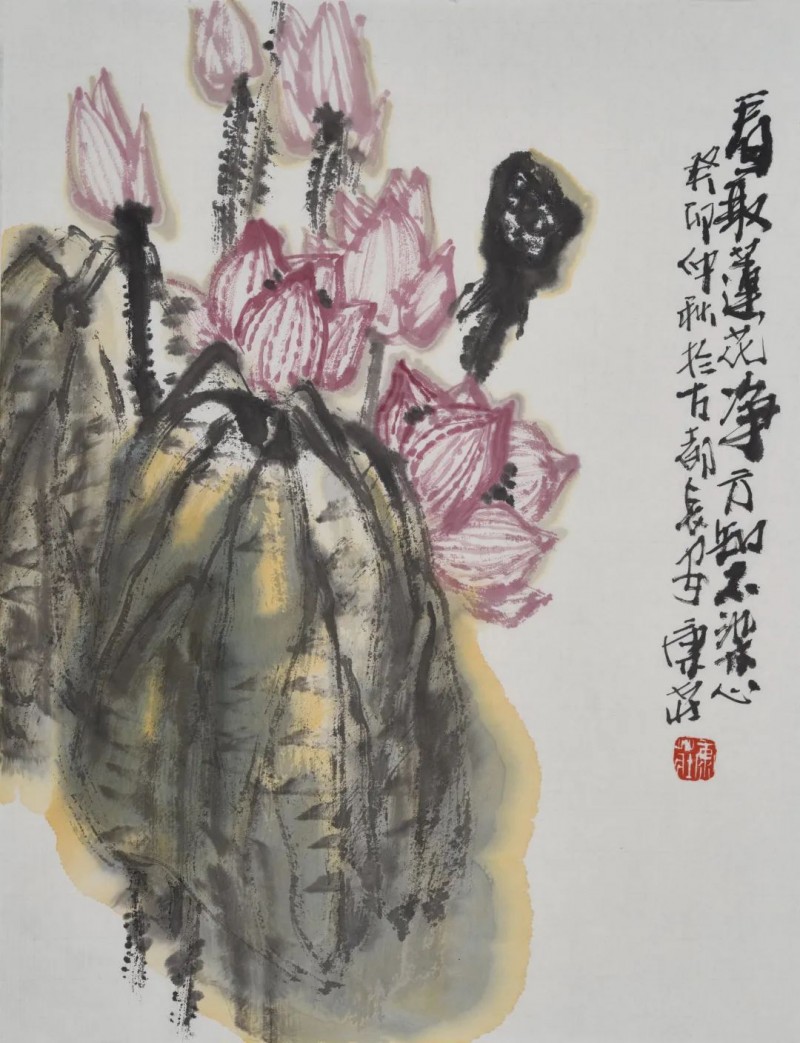 看取蓮花净方知不染心
癸卯仲秋於古都長安康莊
康莊